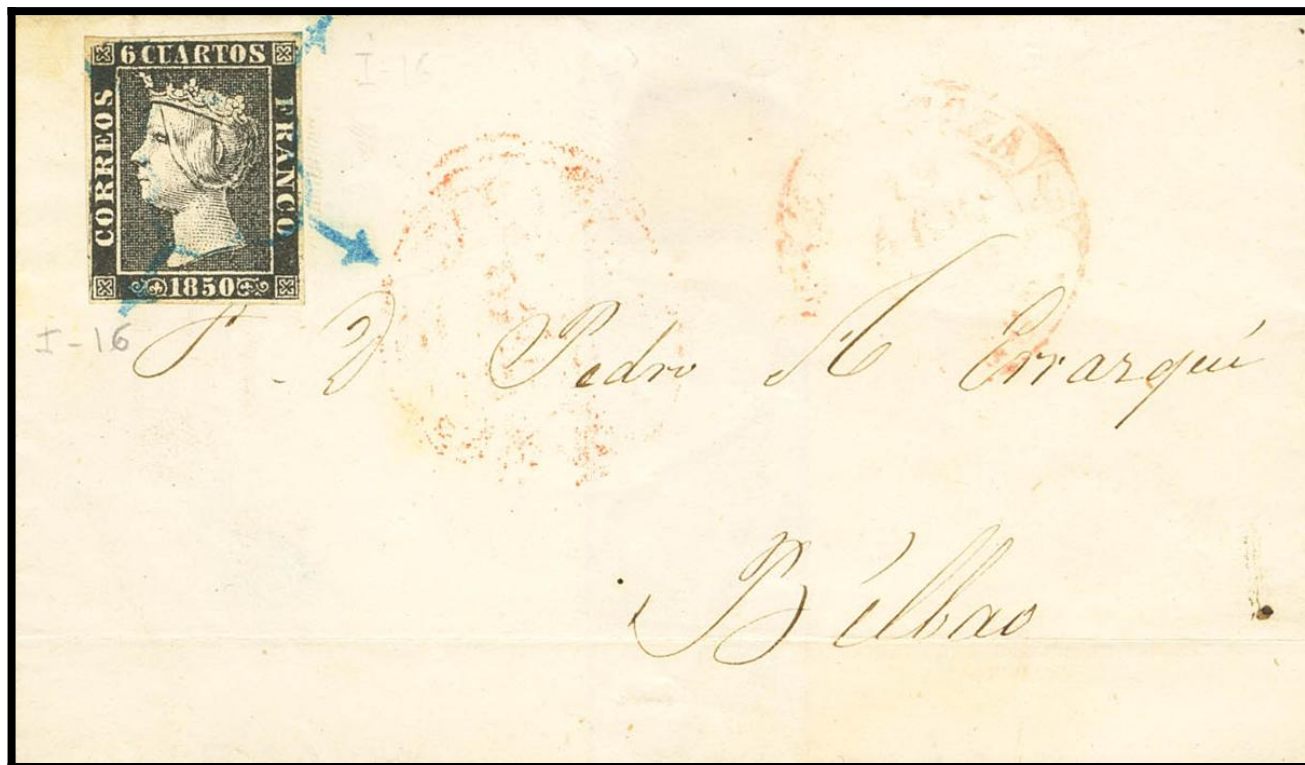 6 CUARTOS
CORREOS
FRANCO
1850
I-16
I-16
Sr D Pedro A Errazquú
Bilbao